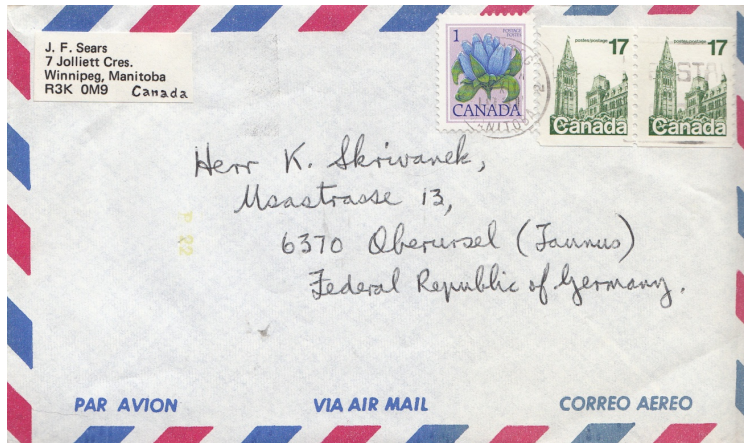 J. F. Sears
7 Jolliett Cres.
Winnipeg, Manitoba
R3K 0M9 Canada
1
POSTAGE
POSTES
CANADA
postes/postage 17
Canada
postes/postage 17
Canada
Herr K. Skrivanek,
Usastrasse 13,
6370 Oberursel (Taunus)
Federal Republic of Germany.
P 22
PAR AVION
VIA AIR MAIL
CORREO AEREO